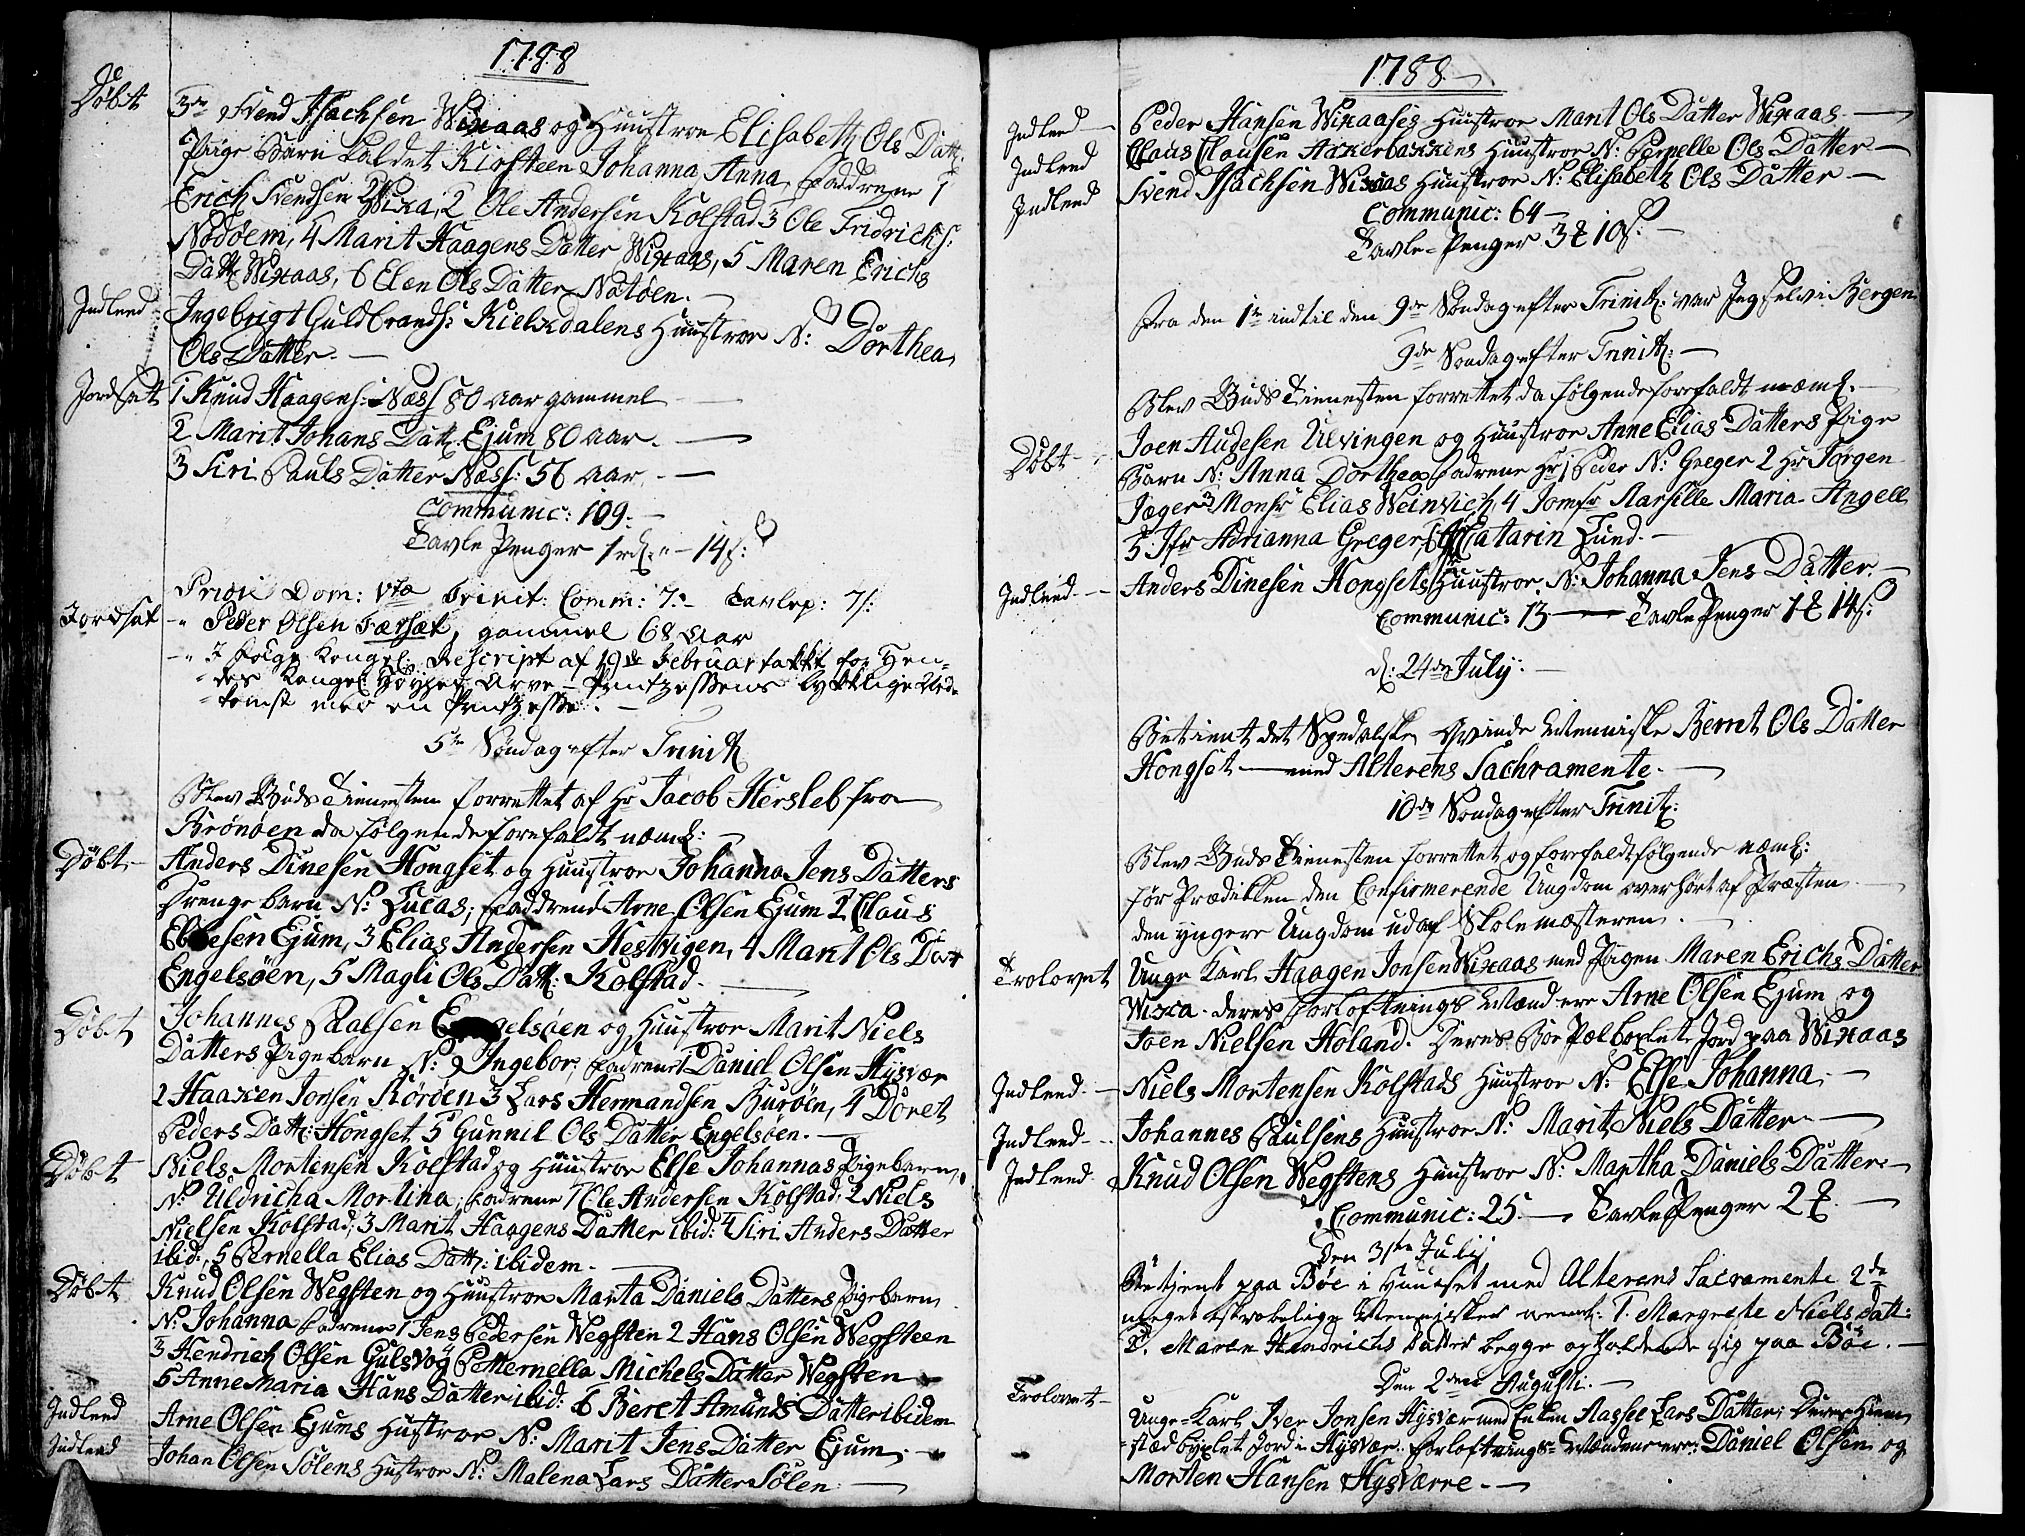 1788
Döbt
3de Svend Isachsen Wixaas og Huustroe Elisabeth Ols Datt:
Piige Barn kaldet Kirsteen Johanna Anna, Faddrene 1
Erich Svendsen Wixa, 2 Ole Andersen Kolstad 3 Ole Fridrichs:
Nödöem, 4 Marit Haagens Datter Wixaas, 5 Maren Erichs
Datt: Wixaas, 6 Elen Ols Datter Natöen.
Indleed Ingebrigt Guldbrands: Kielxdalens Huustroe N: Dorthea
Ols Datter.
Jordsat 1 Knud Haagens: Næss 80 aar gammel
2 Marit Johans Datt: Ejum 80 aar.
3 Siri Pauls Datter Næss: 56 aar.
Communic: 109.
Tavle Penger 1 rd: " 14 s:
Jordsat Dom: Vta trinit: Comm: 7. Tavlep: 7 s:
" Peder Olsen Færsæt, gammel 68 aar
" I følge Kongel: Rescript af 19de Februar takket for Hen-
des Kongel: Høyhed Arve-Printzessens lykkelige Ned-
komst med en Printzesse.
5te Söndag efter Trinit:
Blev Guds Tienesten forrettet af Hr Jacob Hersleb fra
Brönöen da følgende forefaldt næml:
Döbt Anders Dinesen Hongset og Huustroe Johanna Jens Datters
Drenge barn N: Lucas; Faddrene 1 Arne Olsen Ejum 2 Claus
Ebbesen Ejum, 3 Elias Andersen Hestvigen, 4 Marit Ols Datt
Engelsöen, 5 Magli Ols Datt: Kolstad.
Döbt Johannes Paalsen Engelsöen og Huustroe Marit Niels
Datters Pigebarn N: Ingebor; fadrene 1 Daniel Olsen Hysvær
2 Haaxen Jonsen Röröen 3 Lars Hermandsen Buröen, 4 Doret
Peders Datt: Hongset 5 Gunnil Ols Datter Engelsöen.
Döbt Niels Mortensen Kolstad og Huustroe Else Johannas Pigebarn,
N: Uldricha Mortina; fadrene 1 Ole Andersen Kolstad, 2 Niels
Nielsen Kolstad, 3 Marit Haagens Datter ibid: 4 Siri Anders Datter
ibid:, 5 Pernella Elias Datt: ibidem.
Döbt Knud Olsen Wegsten og Huustroe Marta Daniels Datters Pigebarn
N: Johanna fadrene 1 Jens Pedersen Wegsten 2 Hans Olsen Wegsteen
3 Hendrich Olsen Gulsvog 4 Petternella Michels Datter Wegsten
5 Anne Maria Hans Datter ibid: 6 Beret Amunds Datter ibidem
Indleed Arne Olsen Ejums Hustroe N: Marit Jens Datter Ejum.
Indleed Johan Olsen Sölens Hustroe N: Malena Lars Datter Sölen.
1788
Indleed Peder Hansen Wixaases Huustroe Marit Ols Datter Wixaas.
Indleed Claus Clausen Axkerbaxkens Huustroe N: Pernelle Ols Datter
Indleed Svend Isachsen Wixaas Huustroe N: Elisabeth Ols Datter
Communic: 64
Tavle-Penger 3 10 s:
Fra den 1te indtil den 9de Söndag efter Trinit: var Jeg selv i Bergen
9de Söndag efter Trinit:
Blev Guds Tienesten forrettet da følgende forefaldt næml:
Döbt Joen Audesen Ulvingen og Huustroe Anne Elias Datters Pige
Barn N: Anna Dorthea fadrene Hr 1 Peder N: Greger 2 Hr Jörgen
Jæger 3 Monsr Elias Weinvich, 4 Jomfr Marsille Maria Angell
5 Jfr Adrianna Greger Catarin Lund.
Indleed Anders Dinesen Hongsets Huustroe N: Johanna Jens Datter.
Communic: 13 Tavle Penger 1 14 s:
d: 24de July:
Betient det Spedalske Qvinde Menniske Bernt Ols Datter
Hongset med Alterens Sachramente.
10de Söndag efter Trinit:
Blev Guds Tienesten forrettet og forefaldt følgende næml:
før Prædikken den Confirmerende Ungdom overhört af Præsten
den yngere Ungdom udaf Skolemæsteren.
Trolovet Unge Karl Haagen Jonsen Wixaas med Pigen Maren Erichs Datter
Wixa. deres Forloftnings Mænd ere Arne Olsen Ejum og
Joen Nielsen Holand. Deres Boe Pæl boxlet Jord paa Wixaas
Indleed Niels Mortensen Kolstads Huustroe N: Else Johanna.
Indleed Johannes Paulsens Huustroe N: Marit Niels Datter
Indleed Knud Olsen Wegstens Huustroe N: Martha Daniels Datter
Communic: 25. Tavle Penger 2
Den 31te Julij
Betjent paa Böe i Huuset med Alterens Sacramente 2de
meget skrøbelige Mennisker neml: 1. Margrete Niels datt:
2. Maren Hendrichs datter begge opholdende sig paa Böe.
Den 2den Augusti.
Trolovet Unge-Karl Iver Jonsen Hysvær med Enken Massee Lars Datter; Deres Hiem
stæd byxlet Jord i Hysvær. Forloftnings-Mændene ere; Daniel Olsen og
Morten Hansen Hysværre.